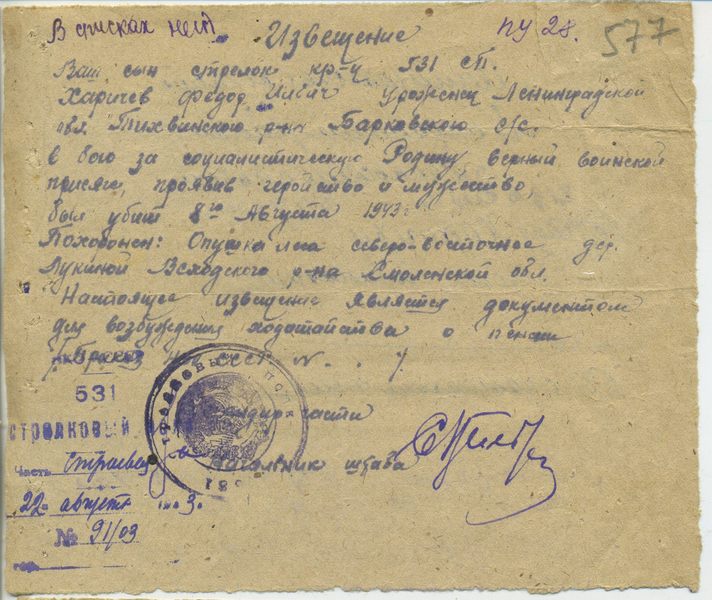 В списках нет
Извещение
ПУ 28.
577
Ваш сын стрелок кр-ц 531 СП.
Харичев Федор Ильич уроженец Ленинградской
обл. Тихвинского р-на Барковского с/с.
в бою за социалистическую Родину верный воинской
присяге, проявив геройство и мужество,
был убит 8го Августа 1943 г
Похоронен: Опушка леса северо-восточнее дер.
Лукиной Всходского р-на Смоленской обл.
Настоящее извещение является документом
для возбуждения ходатайства о пенсии
Приказ НКО СССР N.
531
СТРЕЛКОВЫЙ
Командир части
Часть Строевая
Начальник штаба
22 август 1943.
№ 91/03
гор.